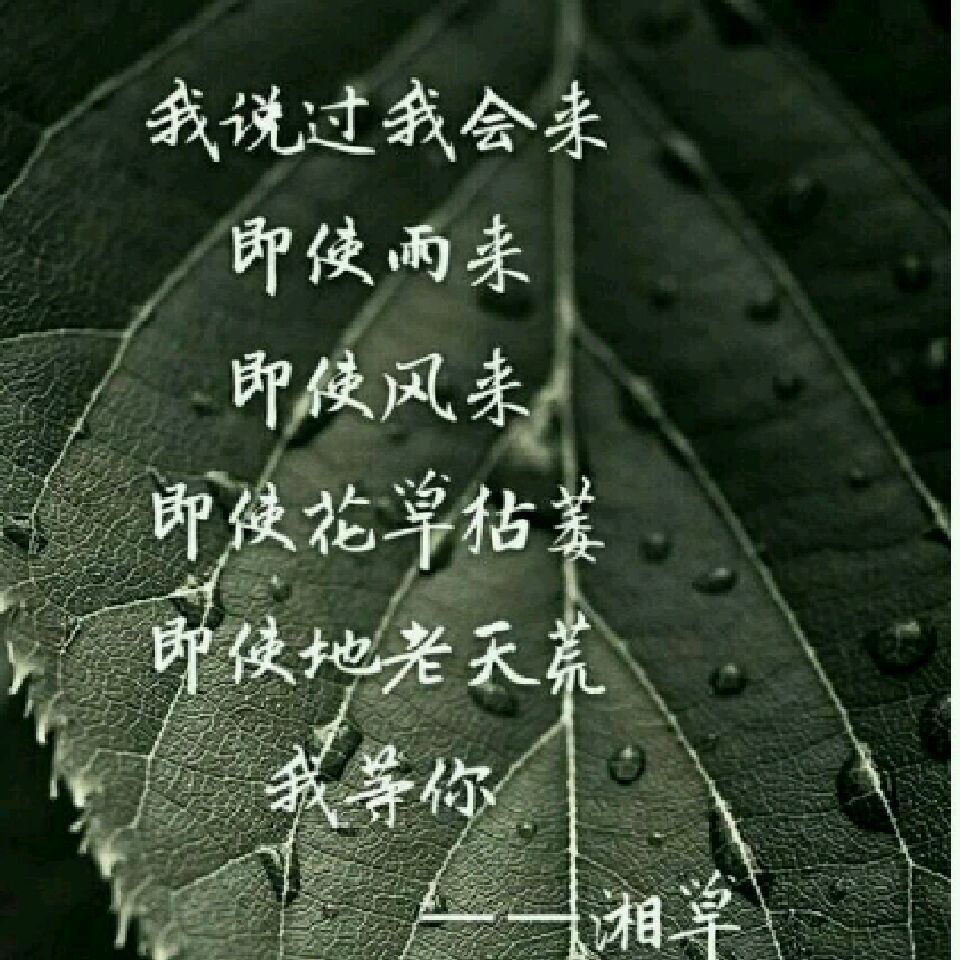 我说过我会来
即使雨来
即使风来
即使花草枯萎
即使地老天荒
我等你
——湘草